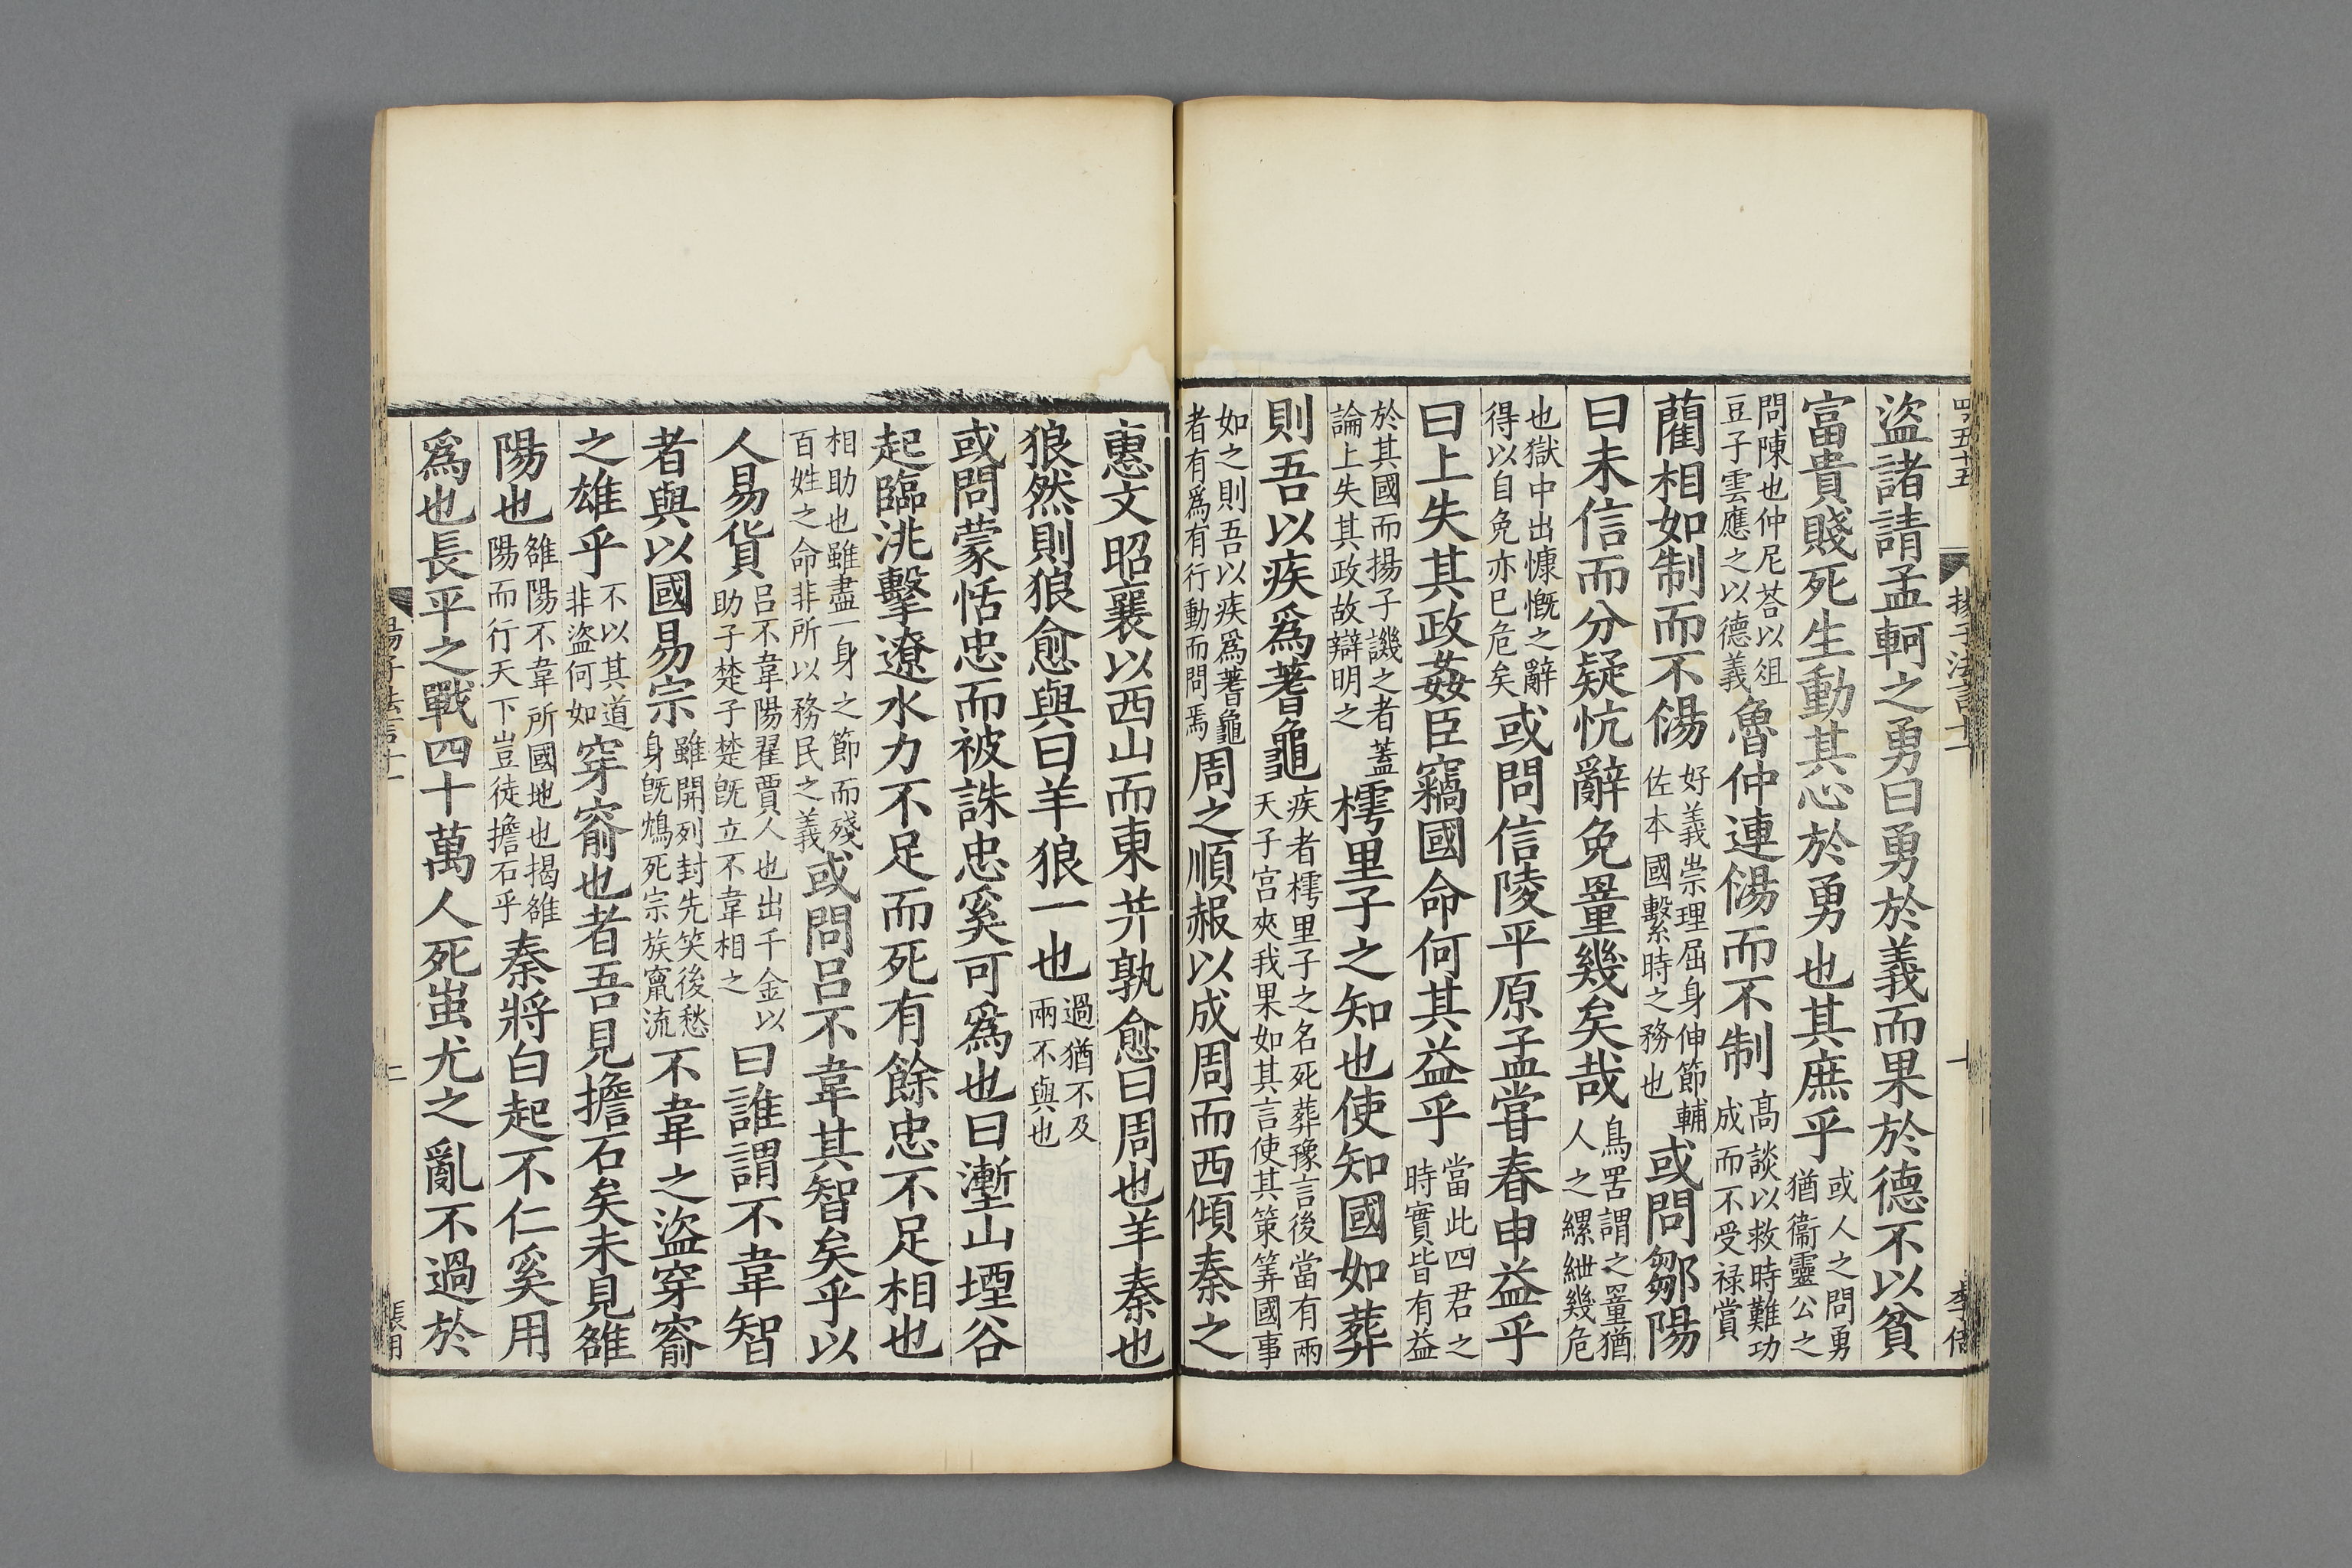 四百五十五 揚子法言十一 十 李倍
盜諸請孟軻之勇曰勇於義而果於德不以貧
富貴賤死生動其心於勇也其庶乎或人之問勇猶衞靈公之
問陳也仲尼荅以俎豆子雲應之以德義魯仲連傷而不制高談以救時難功成而不受祿賞
藺相如制而不傷好義崇理屈身伸節輔佐本國繫時之務也或問鄒陽
曰未信而分疑忼辭免罿幾矣哉鳥罟謂之罿猶人之縲紲幾危
也獄中出慷慨之辭得以自免亦巳危矣或問信陵平原孟甞春申益乎
曰上失其政姦臣竊國命何其益乎當此四君之時實皆有益
於其國而揚子譏之者蓋論上失其政故辯明之樗里子之知也使知國如葬
則吾以疾爲蓍龜疾者樗里子之名死葬豫言後當有兩天子宫夾我果如其言使其策筭國事
如之則吾以疾爲蓍龜者有爲有行動而問焉周之順赧以成周而西傾秦之
惠文昭襄以西山而東并孰愈曰周也羊秦也
狼然則狼愈與曰羊狼一也過猶不及兩不與也
或問蒙恬忠而被誅忠奚可爲也曰塹山堙谷
起臨洮擊遼水力不足而死有餘忠不足相也
相助也雖盡一身之節而殘百姓之命非所以務民之義或問呂不韋其智矣乎以
人易貨呂不韋陽翟賈人也出千金以助子楚子楚旣立不韋相之曰誰謂不韋智
者與以國易宗雖開列封先笑後愁身旣鴆死宗族竄流不韋之盜穿窬
之雄乎不以其道非盜何如穿窬也者吾見擔石矣未見雒
陽也雒陽不韋所國地也揭雒陽而行天下豈徒擔石乎秦將白起不仁奚用
爲也長平之戰四十萬人死蚩尤之亂不過於
揚子法言十一 二 張用